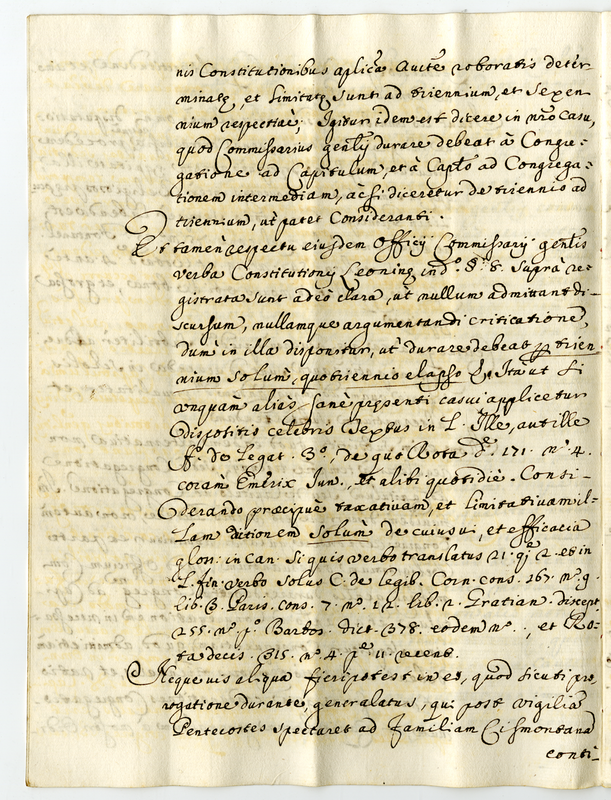 nis Constitutionibus aplicâ Auctẽ roboratis deter
minatę, et limitatę sunt ad triennium, et Sexen
nium respectiuè; Igitur idem est dicere in nrõ Casu,
quod Commissarius genlis durare debeat à Congre-
gatione ad Capitulum, et à Caplõ ad Congrega-
tionem intermediam, ac si diceretur de triennio ad
triennium, ut patet Consideranti.
Et tamen respectu eiusdem Officij Commissarij genlis
verba Constitutionis Leoninę in dº. §. 8. Suprà re-
gistrata sunt adeò clara, ut nullum admittant di-
scursum, nullamque argumentandi criticatione,
dum in illa disponitur, ut durare debeat p trien
nium Solum, quo triennio elapso &. Ita ut si
vnquam aliàs sanè presenti casui applicetur
dispositis celebris Textus in L. Ille, aut ille
ff. de legat. 3º, de quo Rota dẽ. 171. nº. 4.
coram Emerix Jun., et alibi quotidiè. Consi-
derando præcipuè taxatiuam, et limitatiuam il-
lam dictionem Solùm de cuius ui, et efficacia
glos: in Can. Si quis verbo translatus 21. q. 2. et in
L. fin. verbo Solus C. de legib. Corn. cons. 267. nº. 9.
lib. 3. Paris. cons. 7. nº. 12. lib. 2. Gratian. discept.
255. nº. pº. Barbos. dict. 378. eodem nº., et Ro-
ta decis. 315. nº 4. pẽ. 11. recent.
Neque uis aliqua fieri potest in eo, quod sicuti pro
rogatione durante, generalatus, qui post vigilia
Pentecostes spectaret ad familiam Cismontana
conti-